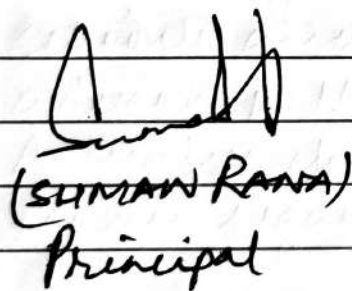 (SUMAN RANA)
Principal